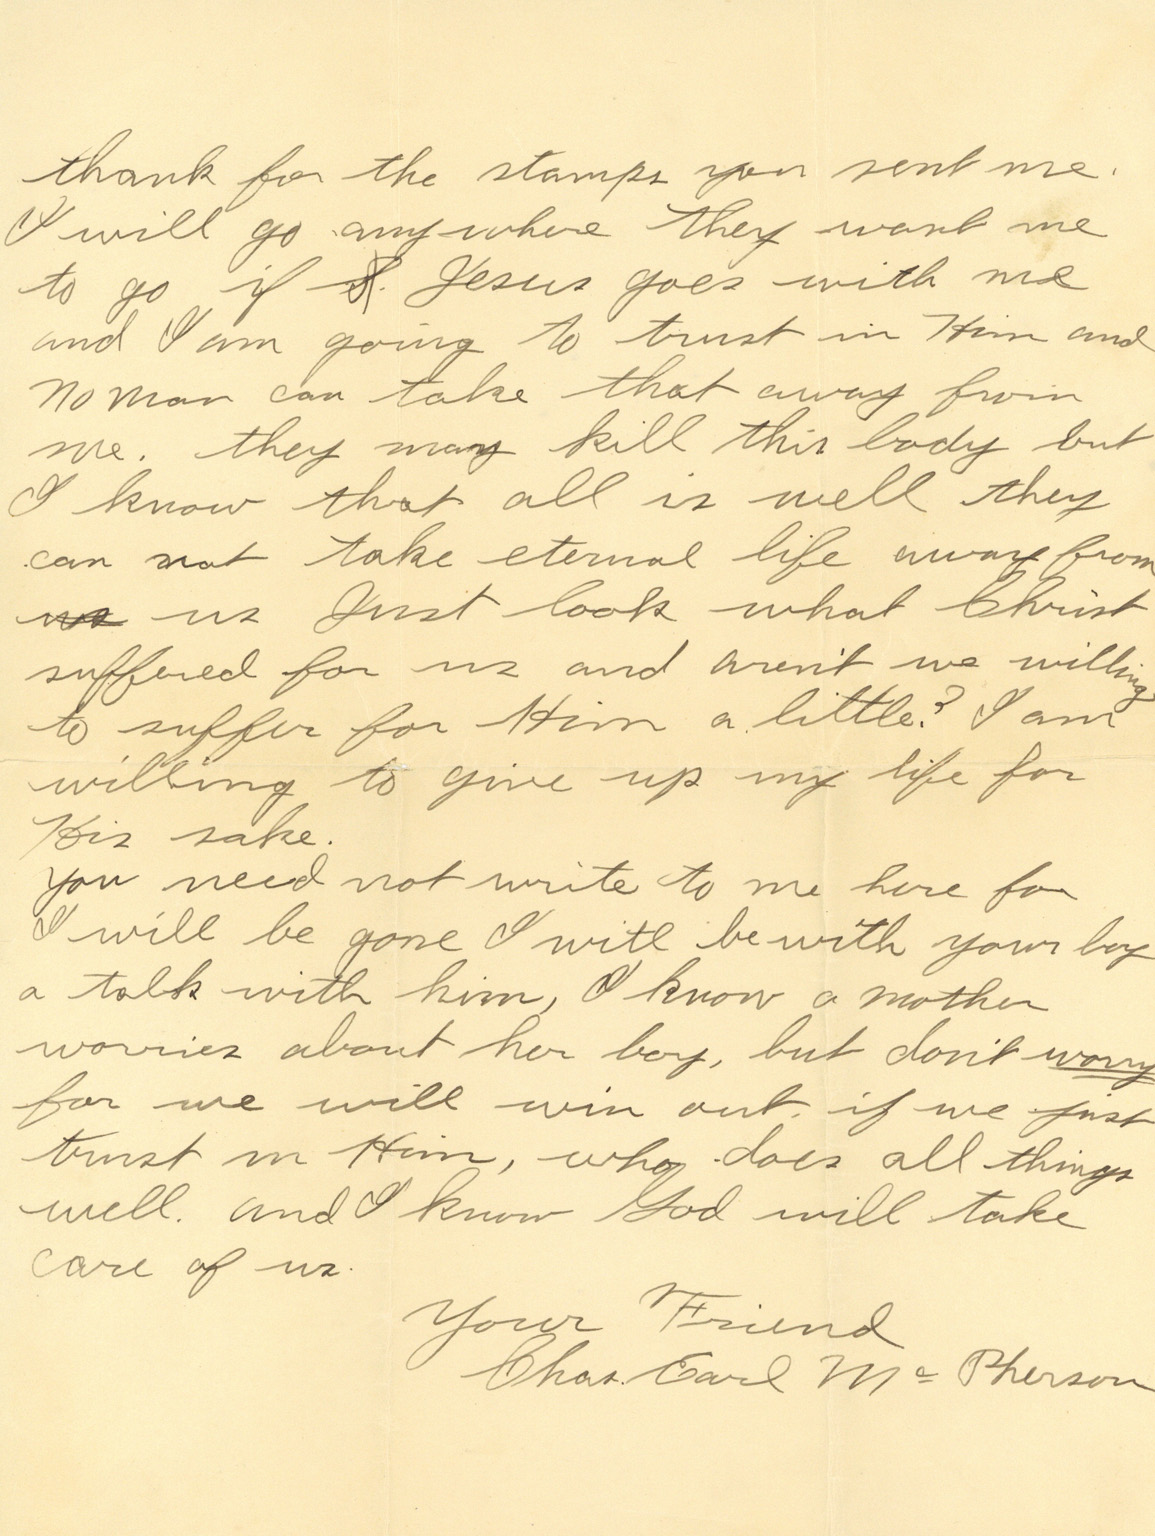 thank for the stamps you sent me.
I will go anywhere they want me
to go if Jesus goes with me
and I am going to trust in Him and
no man can take that away from
me. they may kill this body but
I know that all is well they
can not take eternal life away from
us us Just look what Christ
suffered for us and aren't we willing
to suffer for Him a little? I am
willing to give up my life for
His sake.
You need not write to me here for
I will be gone I will be with your boy
a talk with him, I know a mother
worries about her boy, but don't worry
for we will win out. if we just
trust in Him, who does all things
well. and I know God will take
care of us.
Your Friend
Chas. Earl Mc Pherson